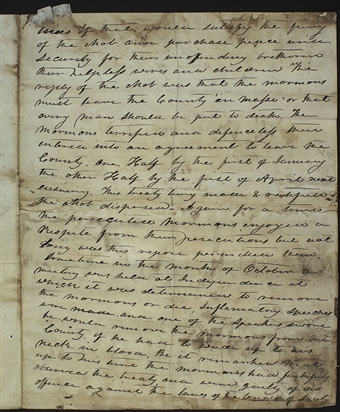 lives if that would satisfy the fury
of the Mob and purchase peace and
security for their unoffending brethren
their helpless wives and children The
reply of the Mob was that the mormons
must leave the County en masse or that
every man should be put to death. The
Mormons terrified and defenceless then
entered into an agreement to leave the
County, one Half by the first of January
the other Half by the first of April next
ensuing. This treaty being made & ratified
the Mob dispersed. Again for a time
the persecuted Mormons enjoyed a
Respite from their persecutions but not
long was this repose permitted them.
Sometime in the month of October a
meeting was held at Independence at
which it was determined to remove
the mormons or die, Inflamatory speeches
were made and one of the speakers swore
he would remove the mormons from the
County if he had to wade up to his
neck in blood. Be it remarked that
up to this time the mormons had faithfully
observed the treaty and were guilty of no
offence against the laws of the land